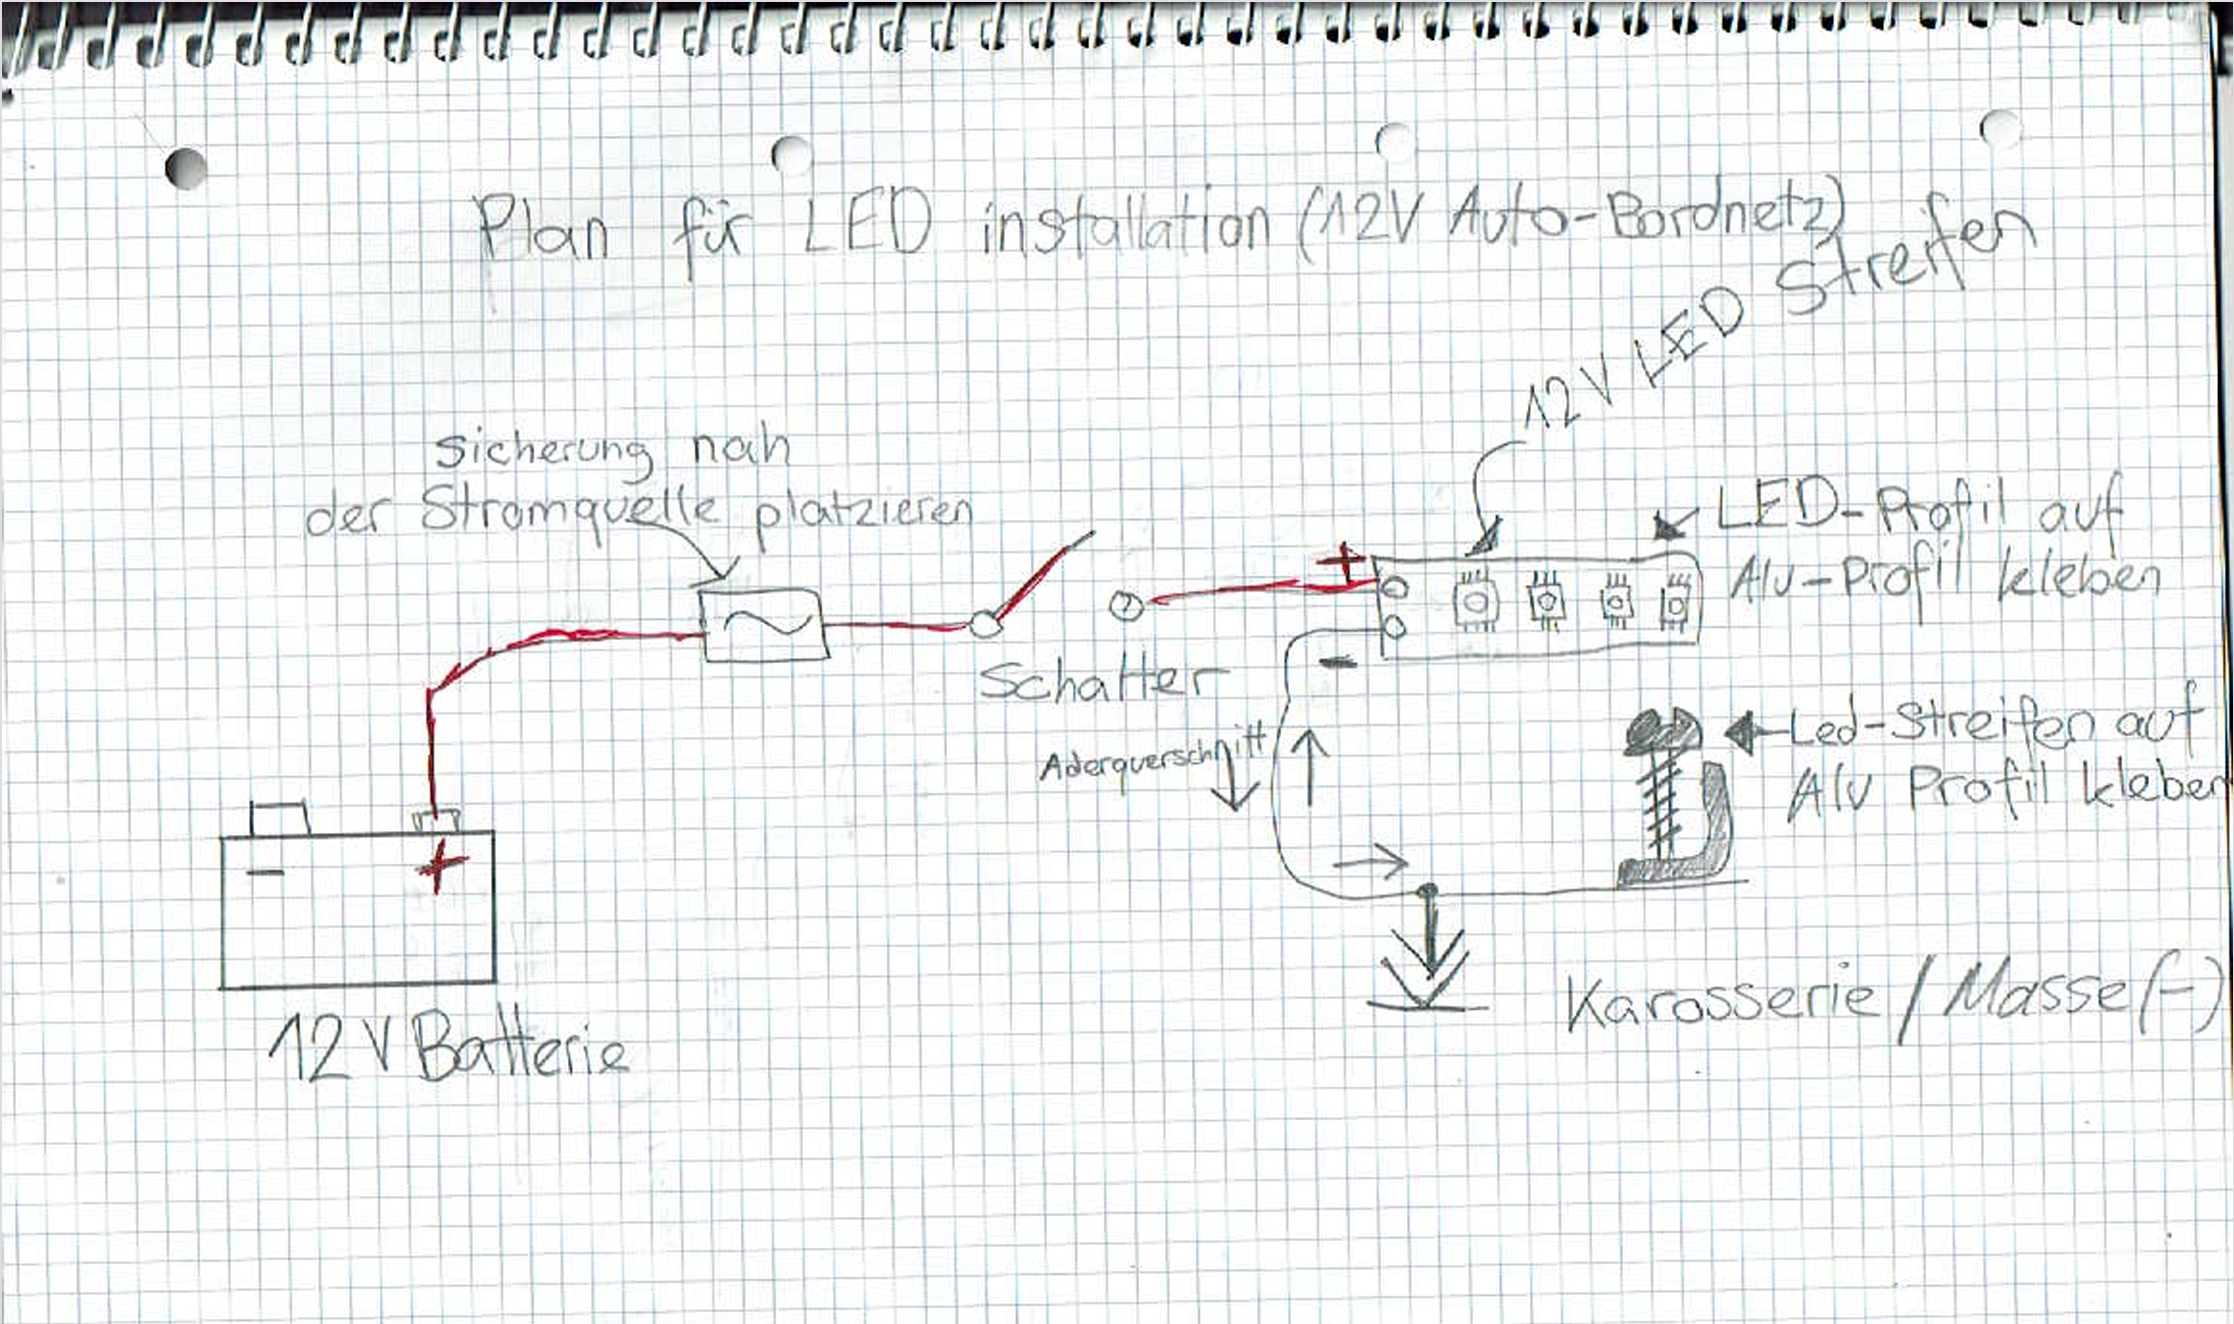 Plan für LED installation (12V Auto-Bordnetz)
12V LED Streifen
Sicherung nah
der Stromquelle platzieren
LED-Profil auf
Alu-Profil kleben
+
-
Schalter
Aderquerschnitt
Led-Streifen auf
Alu Profil kleben
- +
Karosserie / Masse (-)
12V Batterie